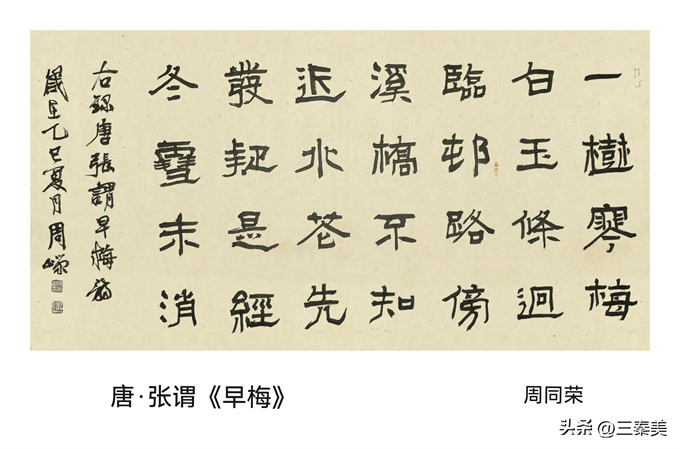 一樹寒梅
白玉條迥
臨邨路傍
溪橋不知
近水花先
發疑是經
冬雪未消
右錄唐張謂早梅詩
歲在乙巳夏月周嶸
唐·张谓《早梅》
周同荣
头条 @三秦美